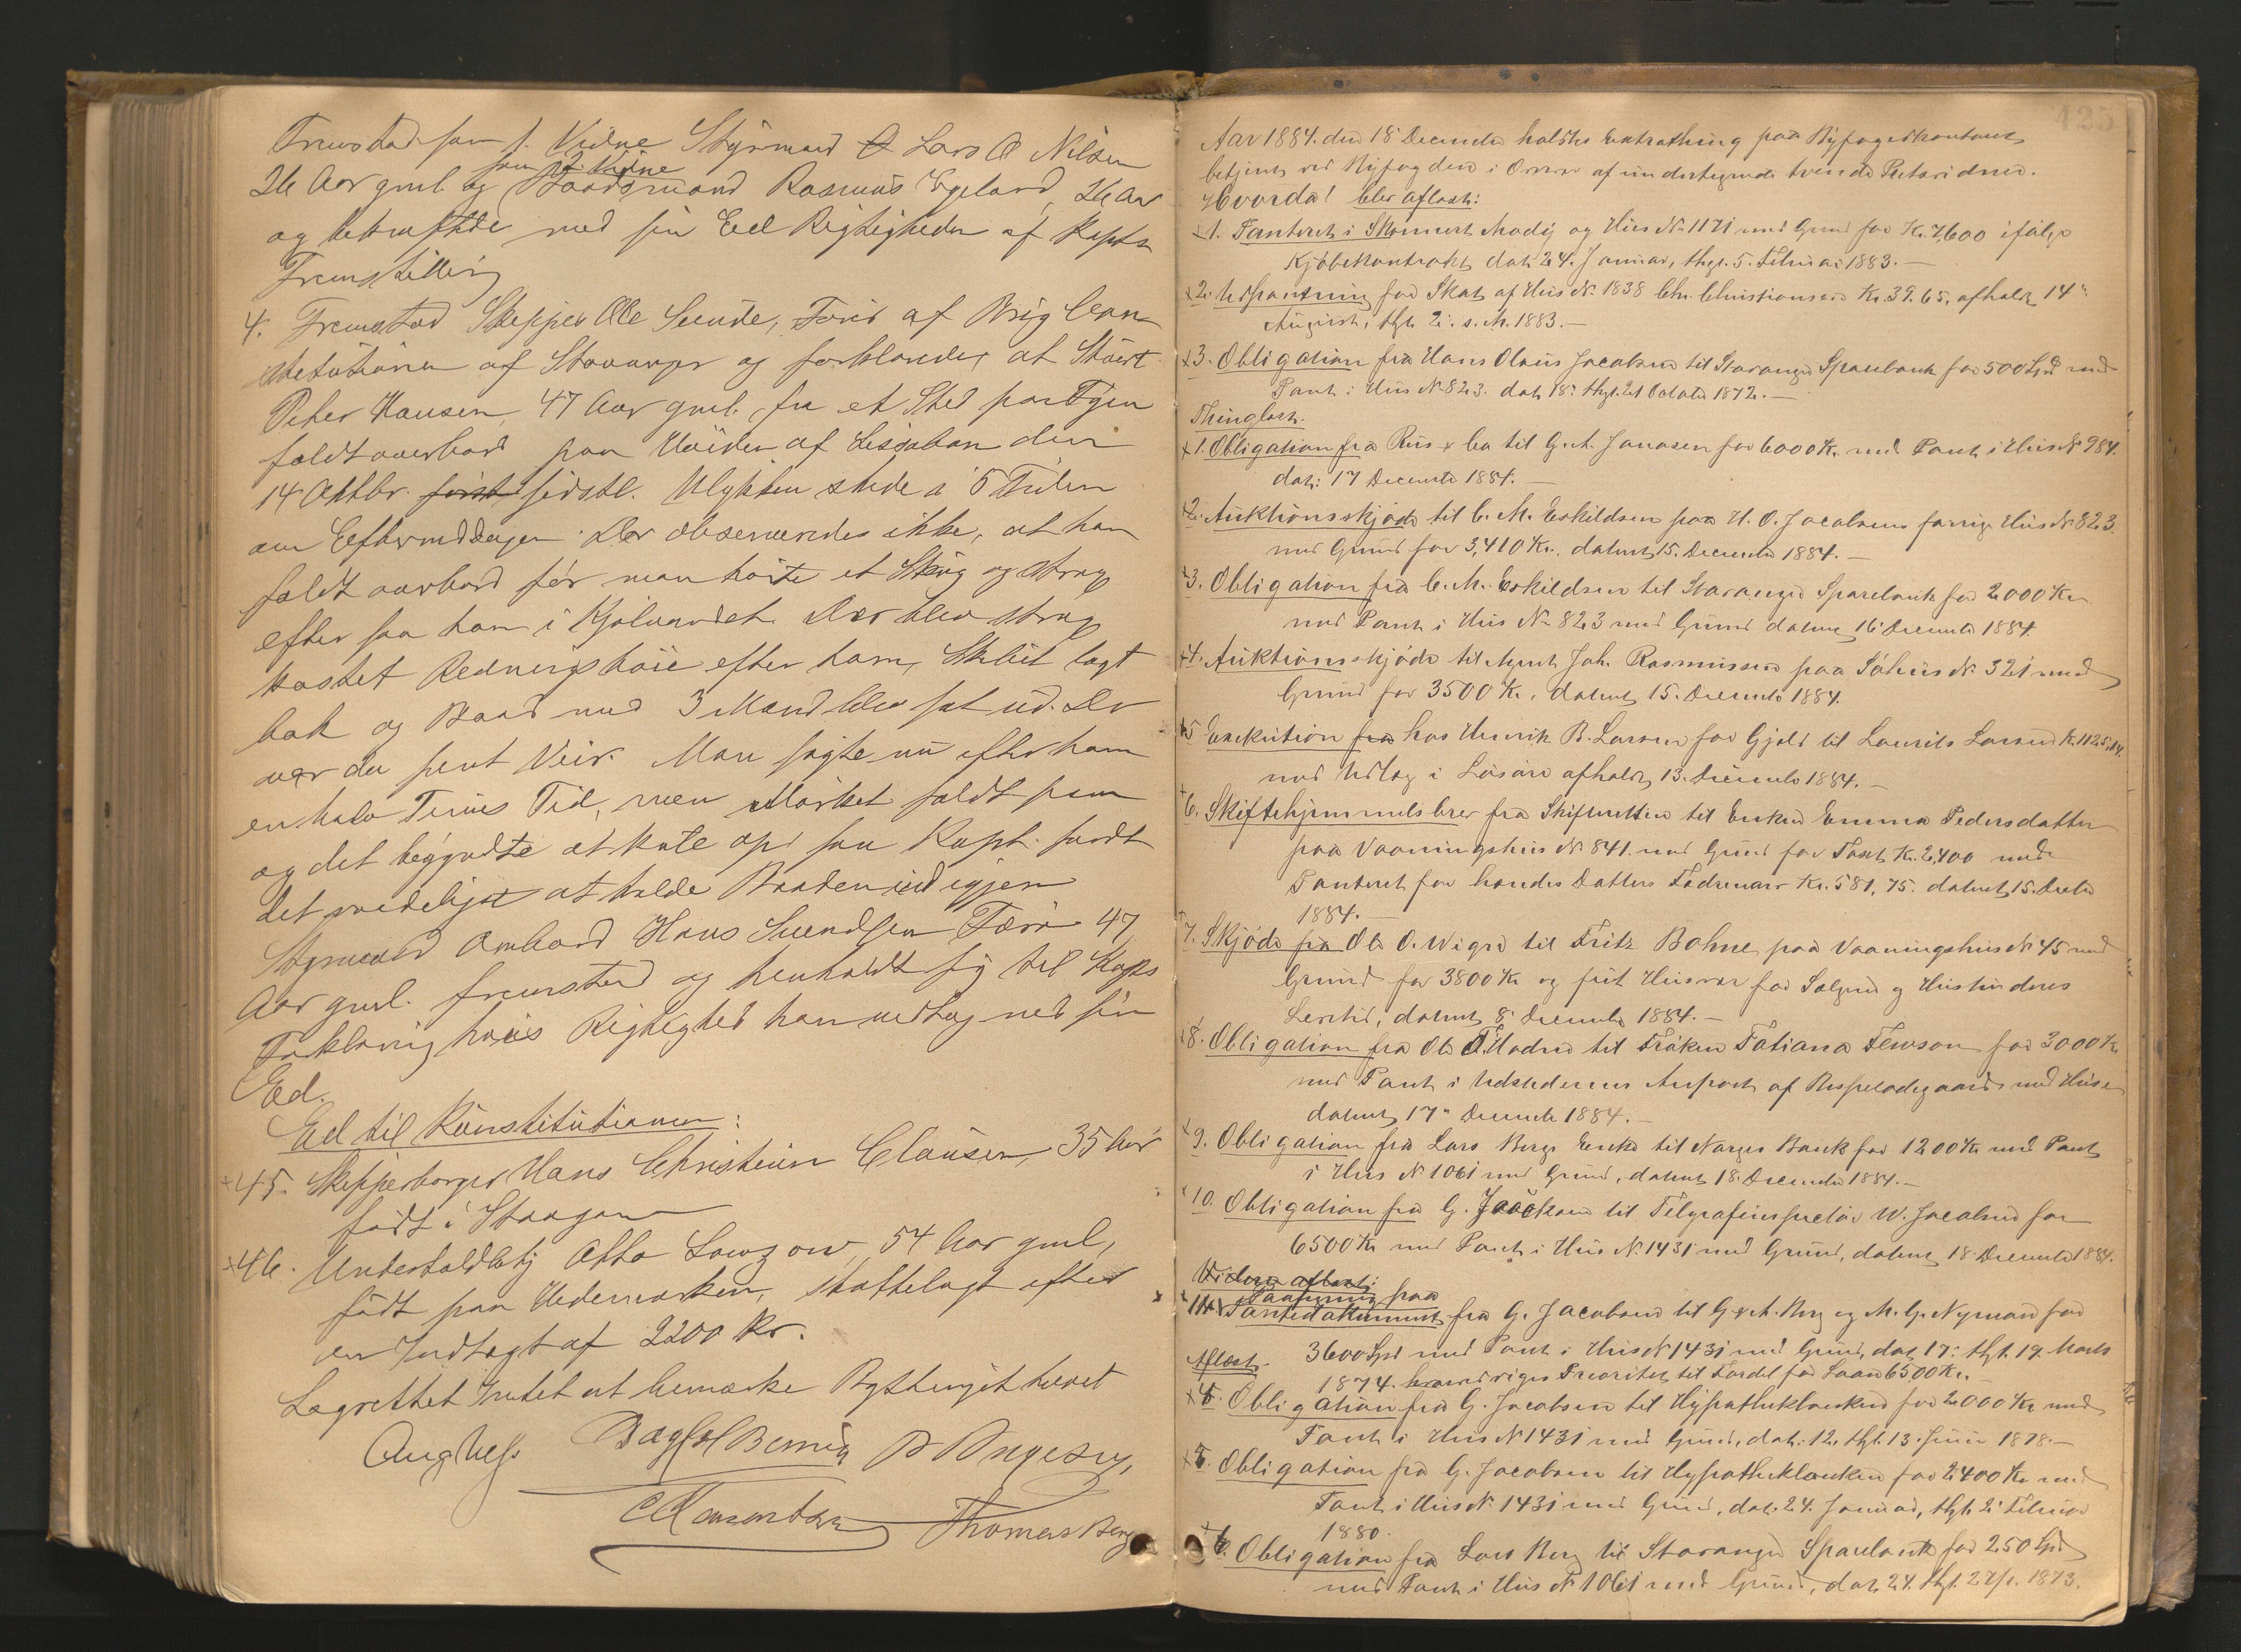 Fremstod som 1. Vidne Styrmand Lars O Nilsen
som 2. Vidne
26 Aar gml. og Baadsmand Rasmus Egeland, 26 Aar
og bekræftede med sin Eed Rigtigheden af Kaptn
Fremstilling
4. Fremstod Skipper Ole Sunde, Fører af Brig Con
stitutionen af Stavanger og forklarede, at Stuert
Peter Hansen, 47 Aar gml. fra et Sted paa Fyen
faldt overbord paa Høiden af Lissabon den
14 Oktbr. først sidstl. Ulykken skede i 5 Tiden
om Eftermiddagen. Der observeredes ikke, at han
faldt overbord før man hørte et Skrig og strax
efter saa ham i Kjølvandet. Der blev strax
kastet Redningsbøie efter ham, Skibet lagt
bak og Baad med 3 Mand blev sat ud. Der
var da pent Veir. Man søgte nu efter ham
en halv Times Tid, men Mørket faldt paa
og det begyndte at kule op, saa Kapt. fandt
det raadeligst at kalde Baaden ind igjen
Styrmand ombord Hans Svendsen Færø 47
Aar gml. fremstod og henholdt sig til Kapts
Forklaring hvis Rigtighed han vedtog med sin
Ed.
Ed til Konstitutionen:
45. Skipperborger Hans Christian Clausen, 35 Aar
født i Stavanger
46. Undertoldbetj Otto Lowzow, 54 Aar gml,
født paa Hedemarken, skattelagt efter
en Indtægt af 2200 Kr.
Lagrettet Intet at bemærke Bythinget hævet
Aug Hess
Thomas Berg
125
Aar 1884. den 18 December holdtes Extrathing paa Byfogedkontoret
betjent ved Byfogden i Overvær af undertegnede tvende Retsvidner.
Hvorda! blev aflæst:
1. Panteret i Skonnert Mody og Hus No 1171 med Grund for Kr. 7,600 ifølge
Kjøbekontrakt dat. 24. Januar, thgl. 5. Februar 1883.—
2. Udpantning for Skat af Hus No. 1838 Chr. Christiansens Kr. 39.65, afholdt 14"
August, thgl. 2. s. M. 1883.—
3. Obligation fra Hans Olaus Jacobsen til Stavanger Sparebank for 500 Spd med
Pant i Hus No 823. dat. 18. thgl. 21 Oktober 1872.—
Thinglæst.
1. Obligation fra Riis & Co til G. A. Jonasen for 6000 Kr. med Pant i Hus No 984.
dat: 17 December 1884.—
2. Auktionsskjøde til C. M. Eskildsen paa H. O. Jacobsens forrige Hus No 823
med Grund for 3,410 Kr., dateret 15. December 1884.—
3. Obligation fra C. M. Eskildsen til Stavanger Sparebank for 2,000 Kr.
med Pant i Hus No 823 med Grund dateret 16 December 1884.
4. Auktionsskjøde til Agent Joh. Rasmussen paa Søhus No. 321 med
Grund for 3500 Kr., dateret 15. December 1884.
5 Exekution fra hos Henrik B. Larsen for Gjæld til Laurits Larsen Kr. 1125,14.
med Udlæg i Løsøre afholdt 13. December 1884.—
6. Skiftehjemmelsbrev fra Skifteretten til Enken Emma Pedersdatter
paa Vaaningshus No 841. med Grund for Taxt Kr. 2,400 med
Panteret for hendes Datters Fædrenarv Kr. 581,75. dateret 15. Decbr
1884.—
7. Skjøde fra Ole O. Wigre til Fritz Bohne paa Vaaningshus No 45 med
Grund for 3800 Kr og frit Husvær for Sælgeren og Hustru deres
Levetid, dateret 8 December 1884.—
8. Obligation fra Ole T. Hodne til Frøken Tatiana Fewson for 3000 Kr
med Pant i Udstederens Anpart af Bispeladegaard med Huse
dateret 17" December 1884.—
9. Obligation fra Lars Bergs Enke til Norges Bank for 1200 Kr med Pant
i Hus No 1061 med Grund, dateret 18. December 1884.—
10. Obligation fra G. Jacobsen til Telegrafinspectør W. Jacobsen for
6500 Kr med Pant i Hus No. 1431 med Grund, dateret 18 December 1884.
Videre aflæst:
Paategning paa
11. Pantedokument fra G. Jacobsen til G & A. Berg og M. G. Nyman for
3600 Spd med Pant i Hus No 1431 med Grund, dat. 17. thgl. 19. Marts
Aflæst. 1874. Prioritet til Fordel for Laan 6500 Kr.—
4. Obligation fra G. Jacobsen til Hypothekbanken for 2,000 Kr med
Pant i Hus No 1431 med Grund, dat. 12. thgl. 13. Juni 1878.—
5. Obligation fra G. Jacobsen til Hypothekbanken for 2,400 Kr med
Pant i Hus No. 1431 med Grund, dat. 24. Januar, thgl. 2. Februar
1880.
6. Obligation fra Lars Berg til Stavanger Sparebank for 250 Spd
med Pant i Hus No 1061 med Grund, dat. 24. thgl. 1873.